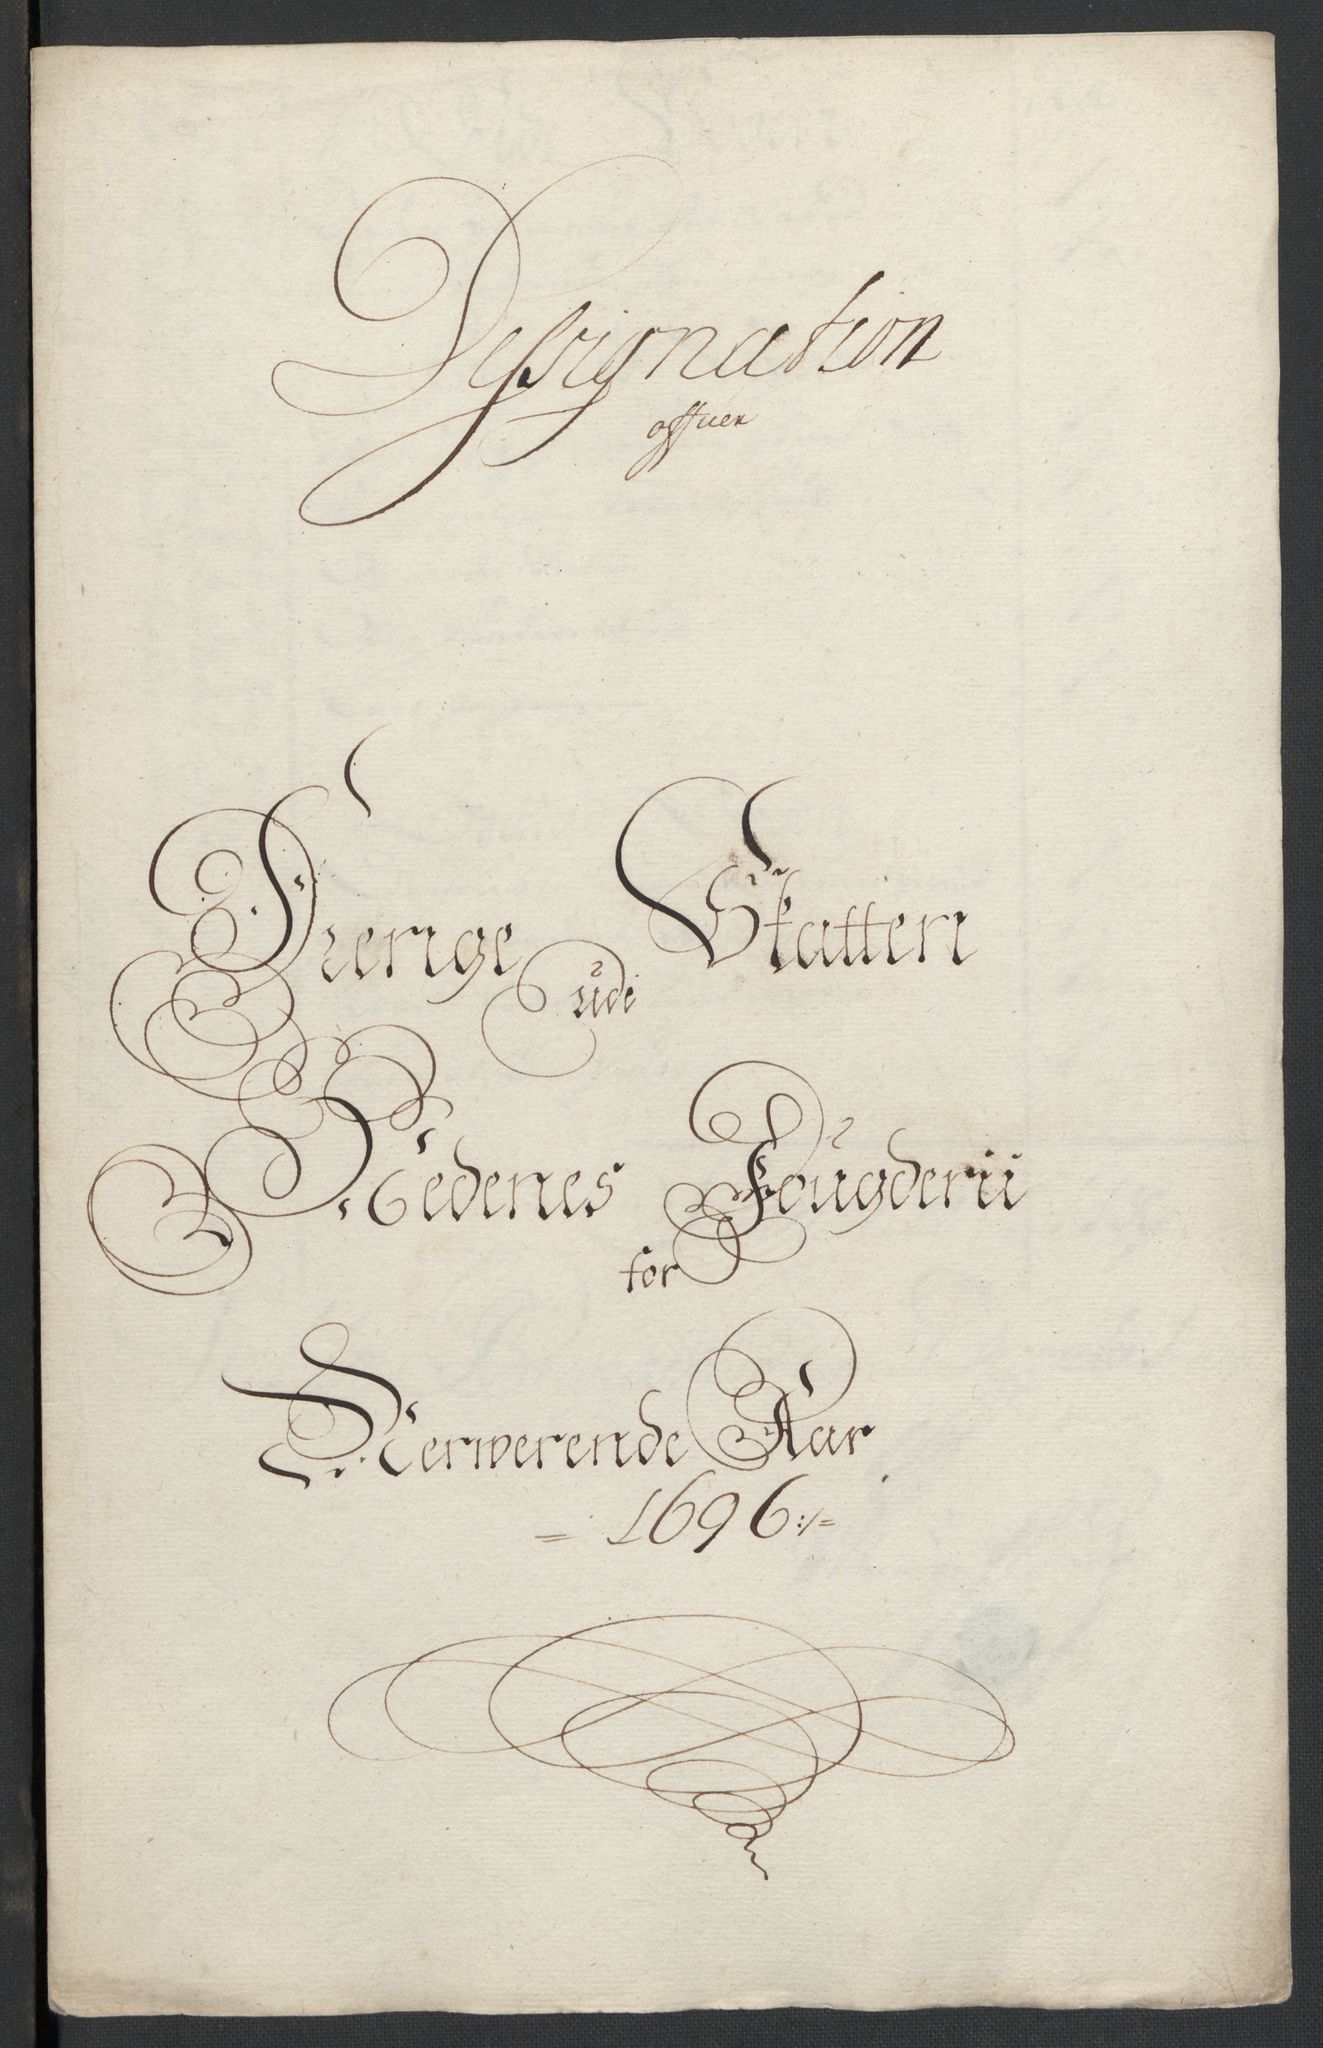 Dessignation
offuer
Skatten
udi
Nedenes Fougderii
for
Nerwerende Aar
= 1696:/=